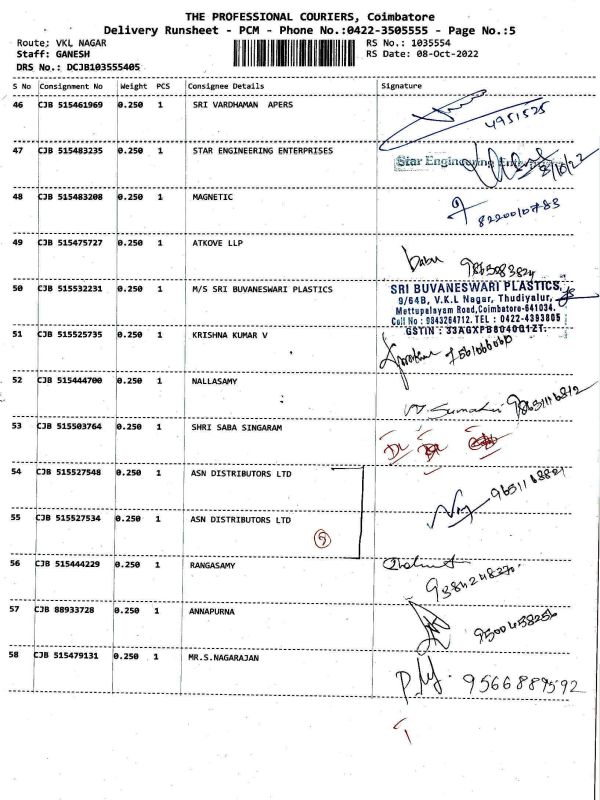 THE PROFESSIONAL COURIERS, Coimbatore
Delivery Runsheet - PCM - Phone No.:0422-3505555 - Page No.:5
Route; VKL NAGAR
RS No.: 1035554
Staff: GANESH
RS Date: 08-Oct-2022
DRS No.: DCJB103555405
S No Consignment No Weight PCS Consignee Details Signature
46 CJB 515461969 0.250 1 SRI VARDHAMAN APERS
4951525
47 CJB 515483235 0.250 1 STAR ENGINEERING ENTERPRISES
Star Engineering
48 CJB 515483208 0.250 1 MAGNETIC
8220010783
49 CJB 515475727 0.250 1 ATKOVE LLP
babu
50 CJB 515532231 0.250 1 M/S SRI BUVANESWARI PLASTICS
SRI BUVANESWARI PLASTICS,
9/64B, V.K.L Nagar, Thudiyalur,
Mettupalayam Road, Coimbatore-641034.
Cell No : 9843264712. TEL : 0422-4393805
GSTIN : 33AGXPB8040Q1ZT.
51 CJB 515525735 0.250 1 KRISHNA KUMAR V
52 CJB 515444700 0.250 1 NALLASAMY
53 CJB 515503764 0.250 1 SHRI SABA SINGARAM
DL
54 CJB 515527548 0.250 1 ASN DISTRIBUTORS LTD
55 CJB 515527534 0.250 1 ASN DISTRIBUTORS LTD
56 CJB 515444229 0.250 1 RANGASAMY
9384248270
57 CJB 88933728 0.250 1 ANNAPURNA
9500458256
58 CJB 515479131 0.250 1 MR.S.NAGARAJAN
9566889592